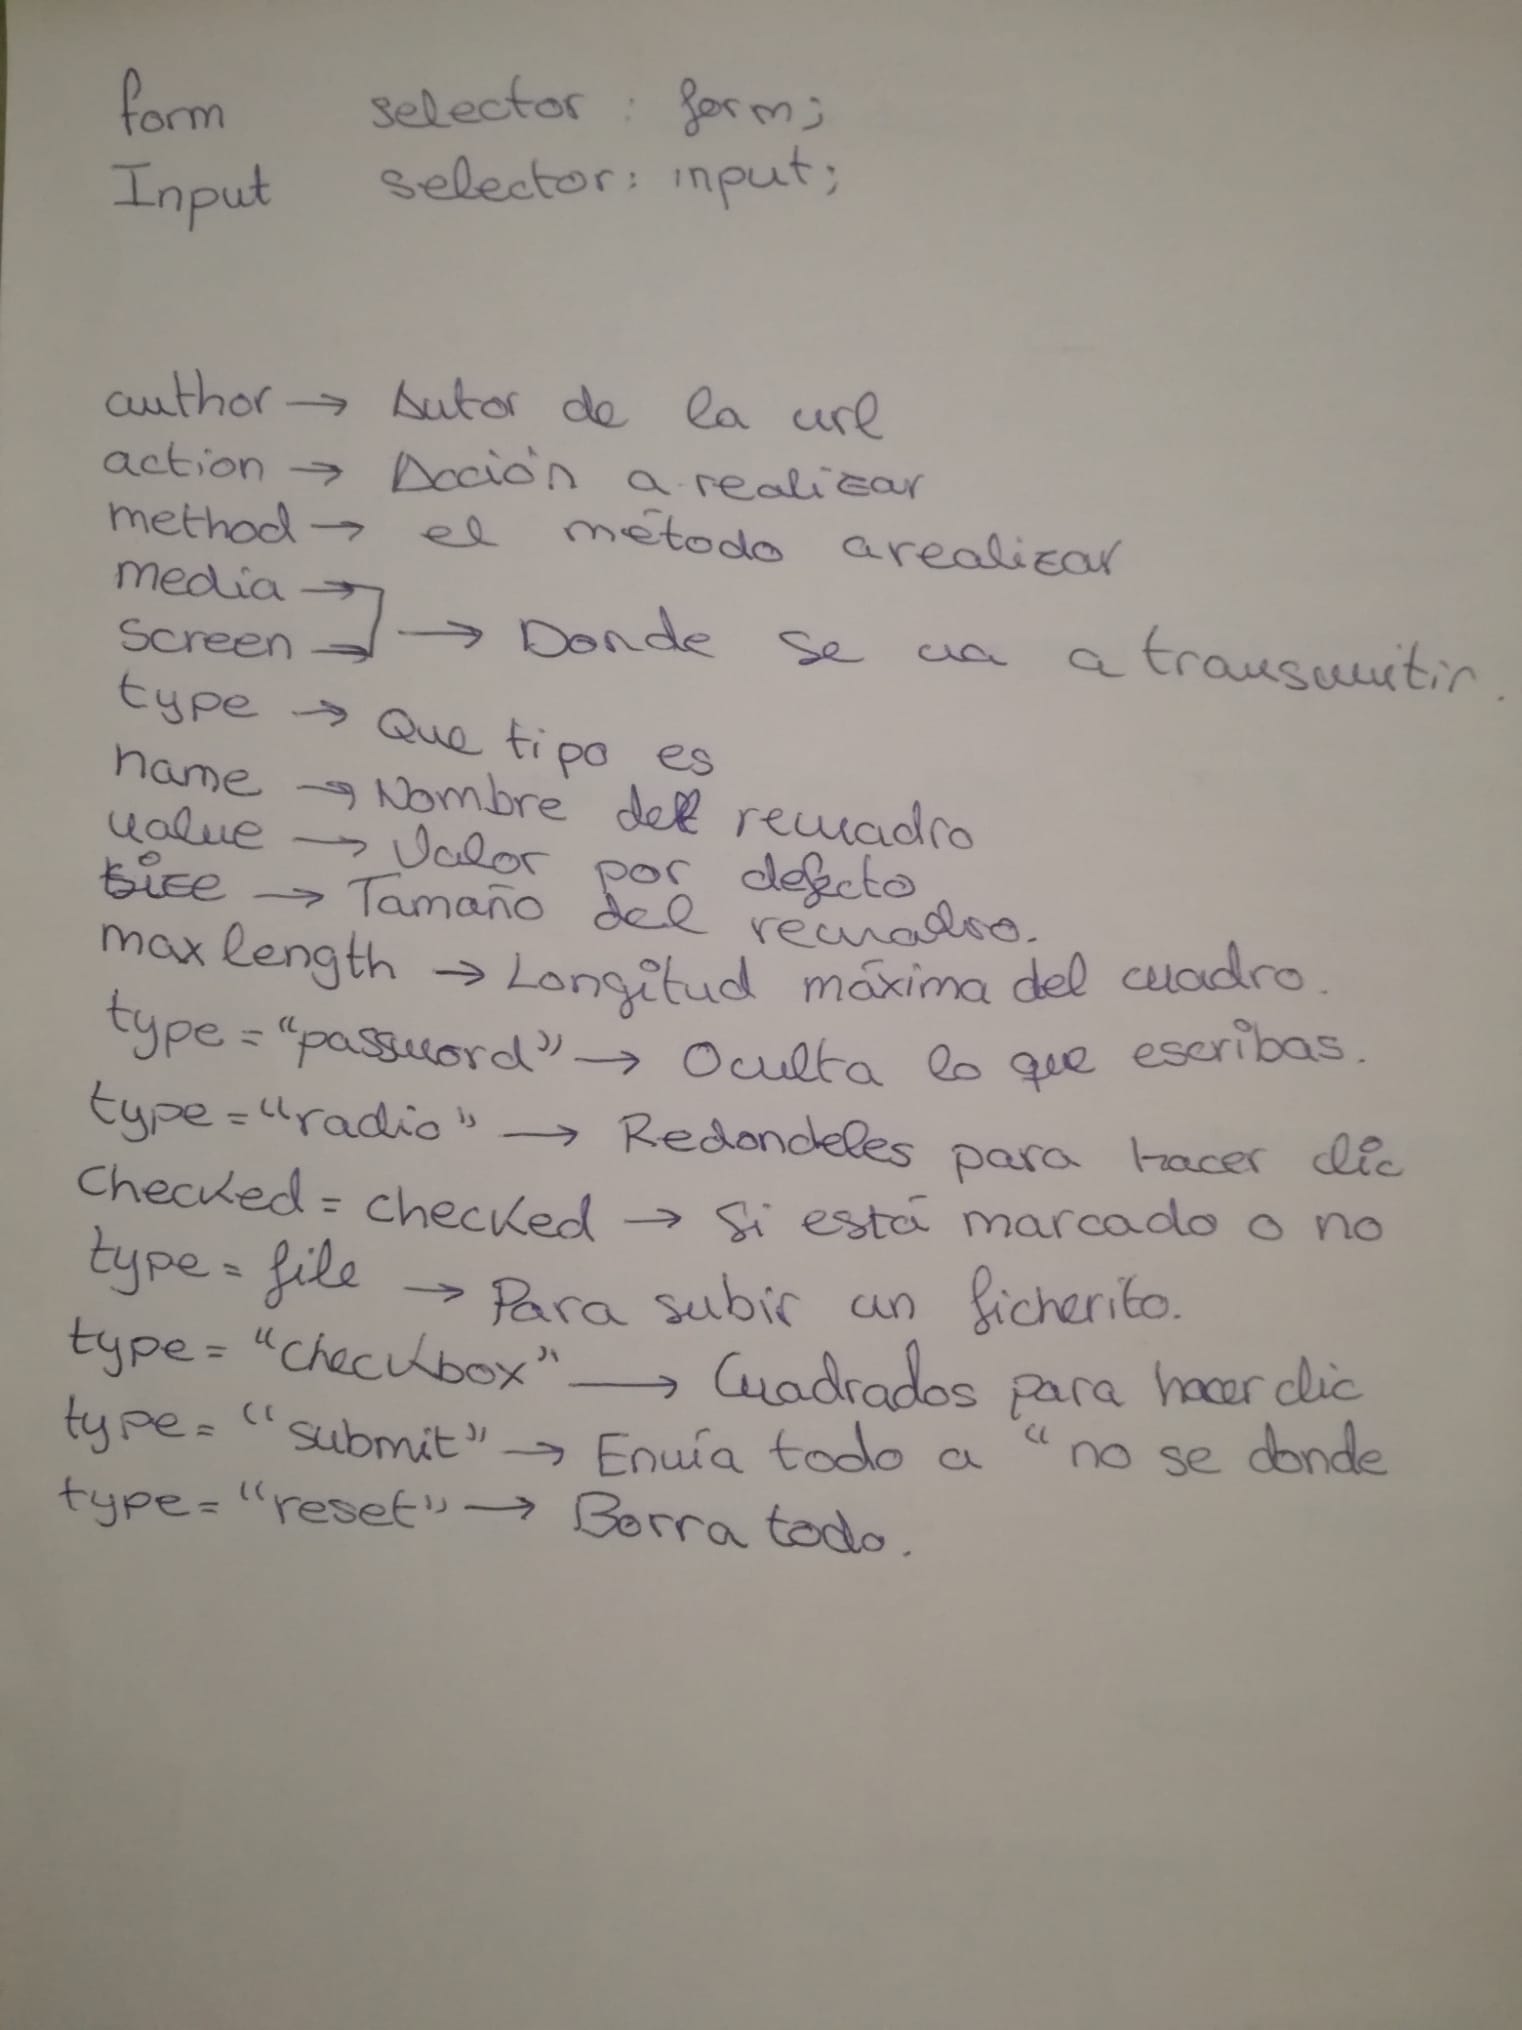 form selector : form;
Input selector: input;
author → Autor de la url
action → Acción a realizar
method → el método a realizar
media →
screen → → Donde se va a transmitir.
type → Que tipo es
name → Nombre del recuadro
value → Valor por defecto
size → Tamaño del recuadro.
maxlength → Longitud máxima del cuadro.
type = "password" → Oculta lo que escribas.
type = "radio" → Redondeles para hacer clic
Checked = checked → Si está marcado o no
type = file → Para subir un ficherito.
type = "checkbox" → Cuadrados para hacer clic
type = "submit" → Envía todo a "no se donde
type = "reset" → Borra todo.